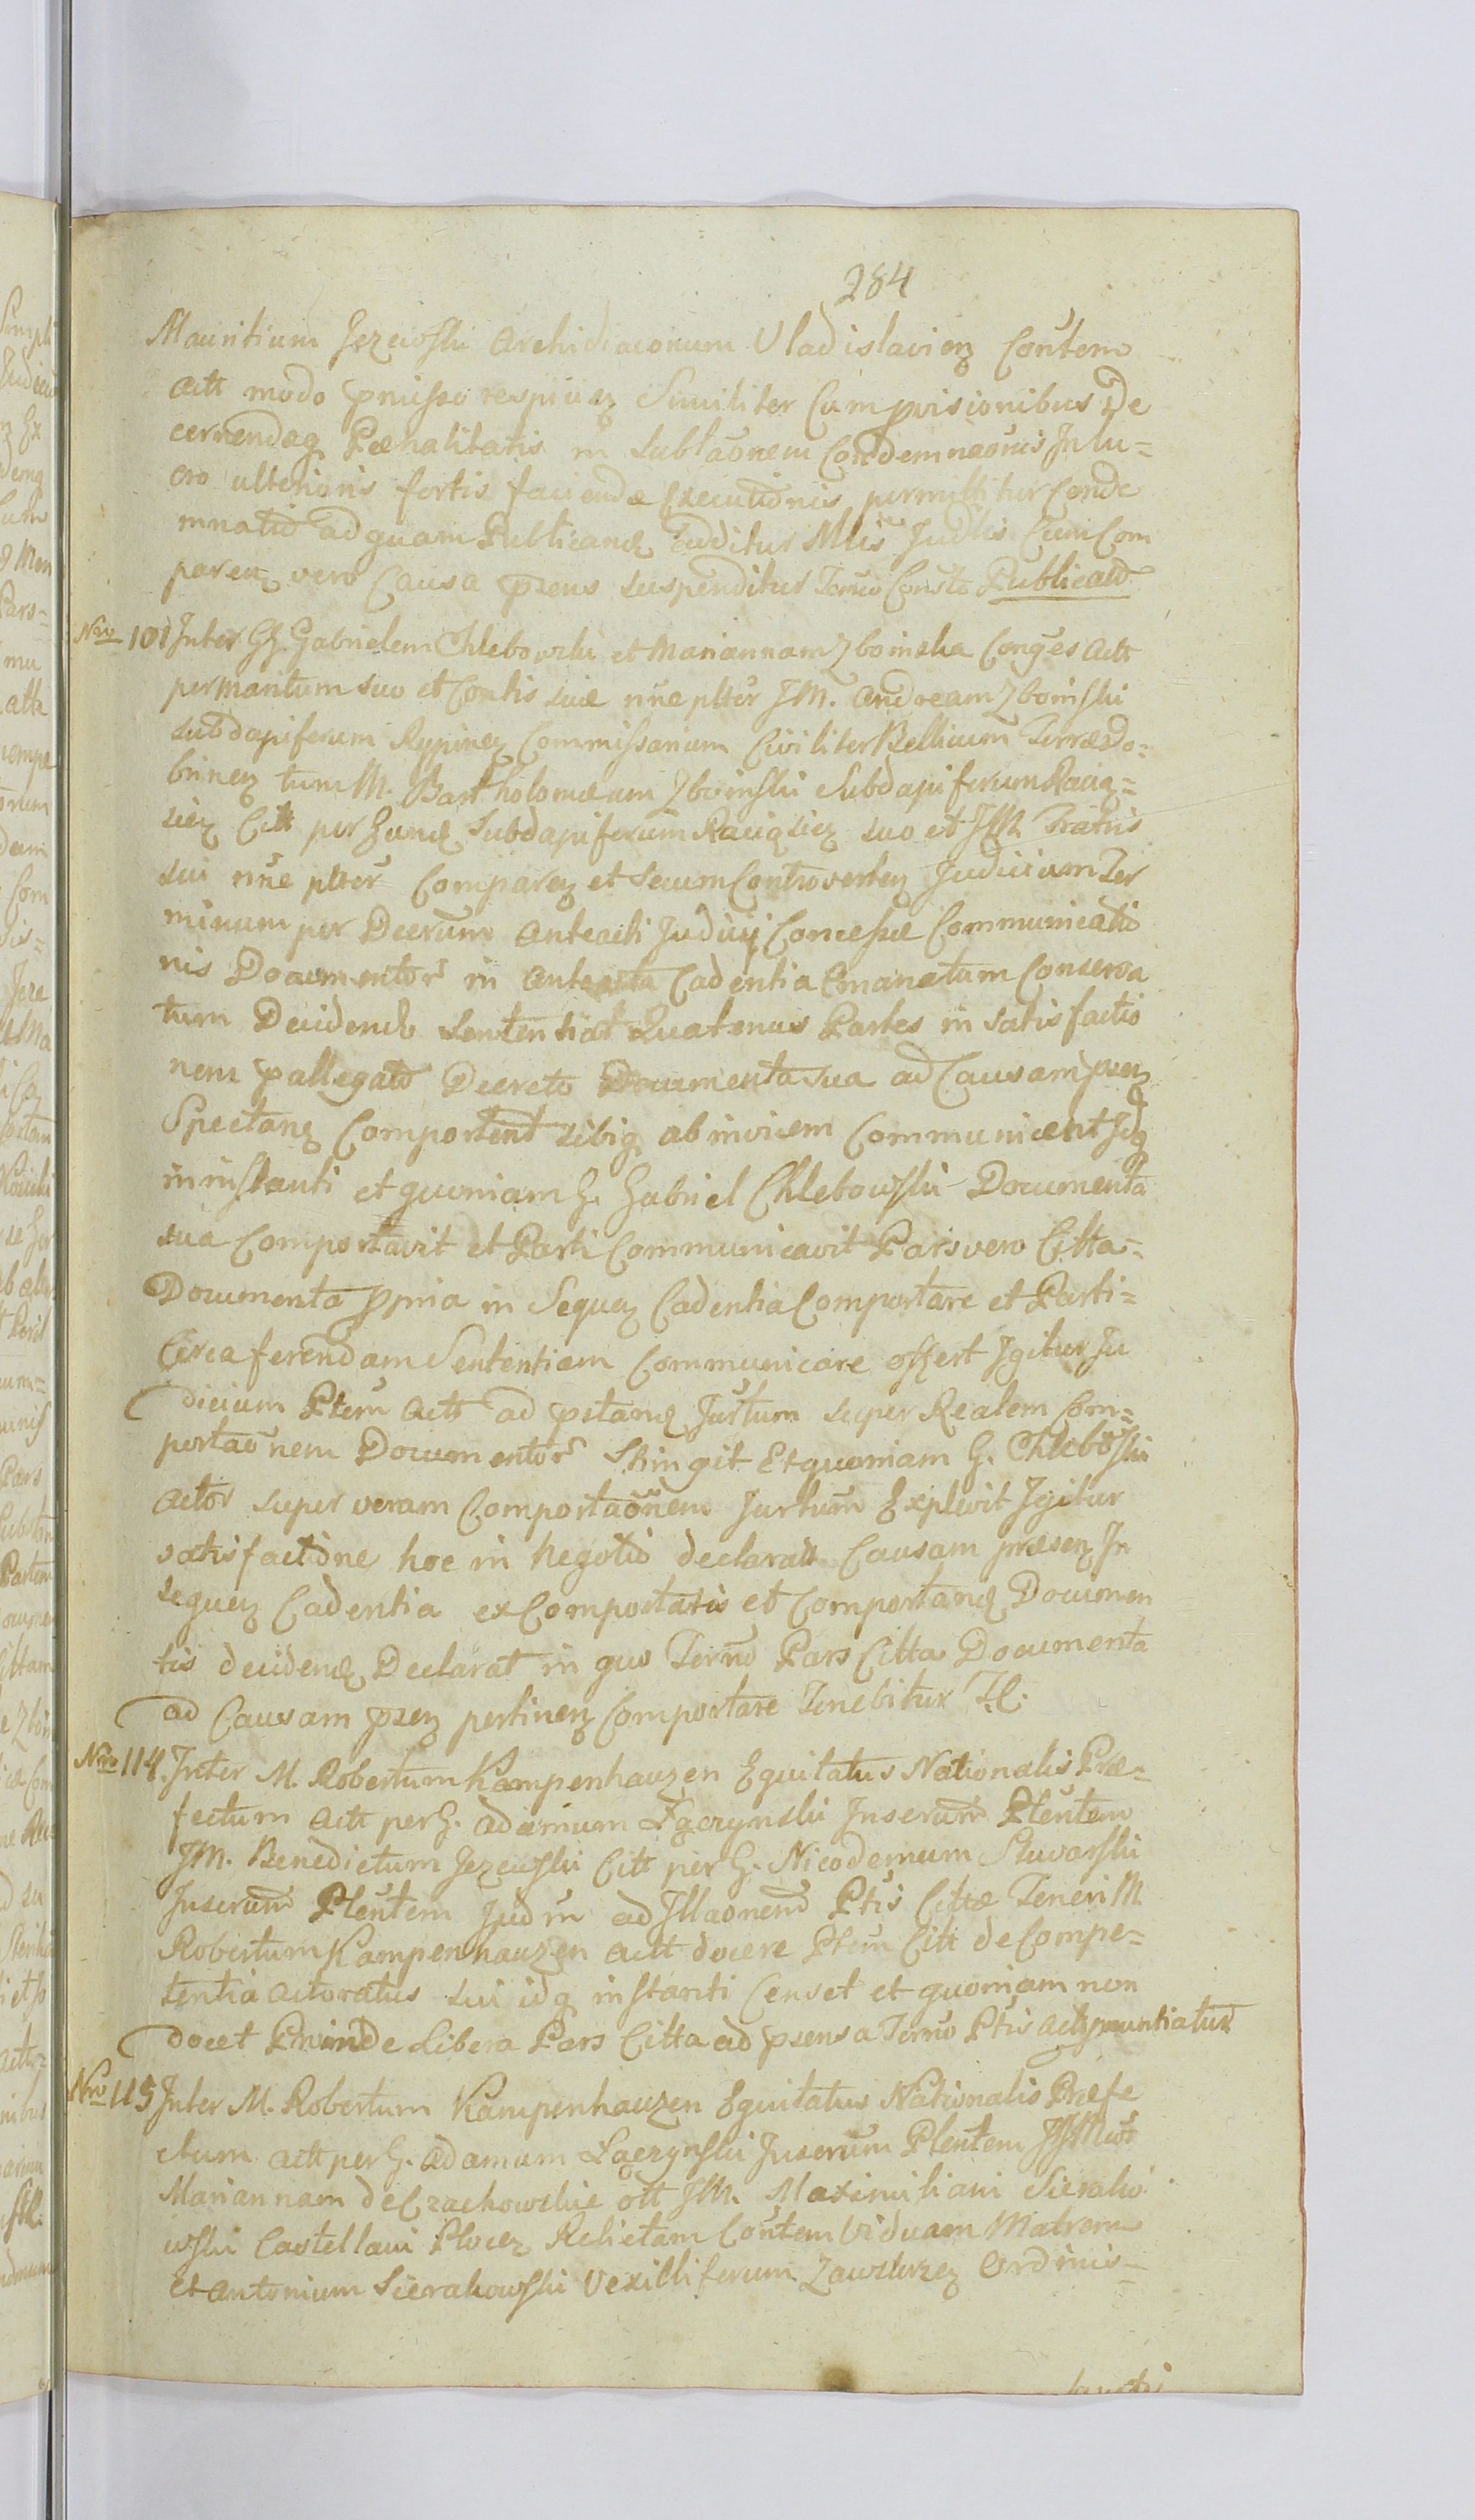 284
Mauritium Jezewski Archidiaconum Vladislavien Conũtem
Actt modo pmisso respicien Similiter Cum provisionibus De
cernendaq Pœnalitatis in Sublaõnem Condemnaõnis In lu=
cro ulterioris fortis faciendæ Executionis permittitur Conde
mnatio ad quam Publicand additur Mlis Judlis Cum Com
paren vero Causa pzens suspenditur Termo Consto Publicato
Nro 101 Inter GG. Gabrielem Chlebowski et Mariannam Zboinska Conges Actt
per maritum suo et Contis suæ nñe plter JM. Andream Zboinski
Subdapiferum Rypinen Commissarium Civiliter Bellicum Terræ Do=
brinen tum M. Bartholomæum Zboinski Subdapiferum Raciąz=
sien Citt per Eund Subdapiferum Raciązsien suo et JM. Fratris
sui nñe plter Comparen et secum Controverten Judicium Ter
minum per Decrum Anteacti Judicij Concessæ Communicatio
nis Documentor in Anteacta Cadentia Emanatum Conserva
tum Decidendo Sententiat Quatenus Partes in satisfactio
nem pallegato Decreto Documenta sua ad Causam pzen
Spectand Comportent sibiq ab invicem Communicent Idq
in instanti et quoniam G. Gabriel Chlebowski Documenta
sua Comportavit et Parti Communicavit Pars vero Citta=
Documenta ppria in Sequen Cadentia Comportare et Parti=
Circa ferendam Sententiam Communicare offert Igitur Ju
dicium Ptem Actt ad pstand Jurtum super Realem Com=
portaõnem Documentor Stringit Et quoniam G. Chlebõski
Actor super veram Comportaõnem Jurtum Explevit Igitur
satisfactione hoc in Negotio declarata Causam præsen In
sequen Cadentia ex Comportatis et Comportand Documen
tis decidend Declarat in quo Termo Pars Citta Documenta
ad Causam pzen pertinen Comportare Tenebitur T. C.
Nro 114. Inter M. Robertum Kampenhauzen Equitatus Nationalis Præ=
fectum Actt per G. Adamum Łączynski Juserum Plentem
JM. Benedictum Jezewski Citt per G. Nicodemum Skwarski
Juserum Plentem Jud in ad Illaonem Ptis Cittæ Teneri M
Robertum Kampenhauzen Actt docere Ptem Citt de Compe=
tentia Actoratus sui idq instanti Censet et quoniam non
docet Proinde Libera Pars Citta ad pzens a Termo Ptis Actt pnuntiatur
Nro 115 Inter M. Robertum Kampenhauzen Equitatus Nationalis Præfe
ctum Actt per G. Adamum Łączynski Juserum Plentem JJMMos
Mariannam de Czachowskie olt JM. Maximiliani Sierako
wski Castellani Plocen Relictam Contem Viduam Matrem
et Antonium Sierakowski Vexilliferum Zawskrzen Ordinis=